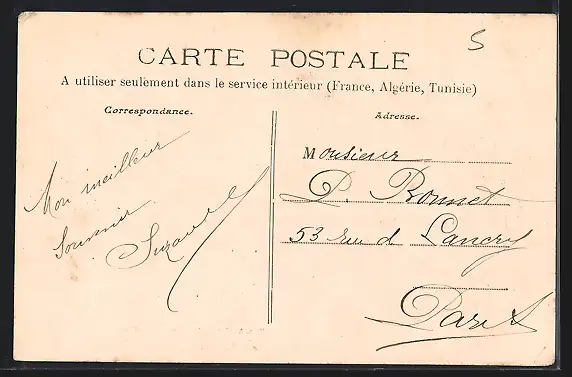 5
CARTE POSTALE
A utiliser seulement dans le service intérieur (France, Algérie, Tunisie)
Correspondance.
Adresse.
Mon meilleur
Souvenir
Suzanne
Monsieur
P. Bonnet
53 rue d Lancry
Paris